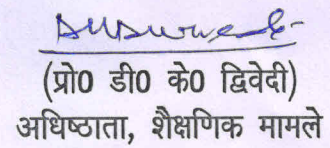 (प्रो0 डी0 के0 द्विवेदी)
अधिष्ठाता, शैक्षणिक मामले